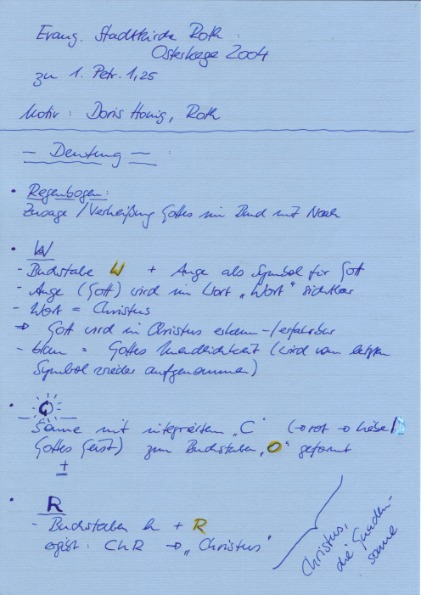 Evang. Stadtkirche Roth
Osterkerze 2004
zu 1. Petr. 1,25
Motiv: Doris Honig, Roth
- Deutung -
• Regenbogen:
Zusage / Verheißung Gottes im Bund mit Noah
• W
- Buchstabe W + Auge als Symbol für Gott
- Auge (Gott) wird im Wort „Wort" sichtbar
- Wort = Christus
→ Gott wird in Christus erkenn-/erfahrbar
- blau = Gottes Unendlichkeit (wird vom letzten
Symbol wieder aufgenommen)
•
Sonne mit integriertem „C" (→ rot → Liebe/
Gottes Geist) zum Buchstaben „O" geformt
+
• R
- Buchstaben h + R
ergibt: ChR → „Christus"
Christus,
die Gnaden-
sonne